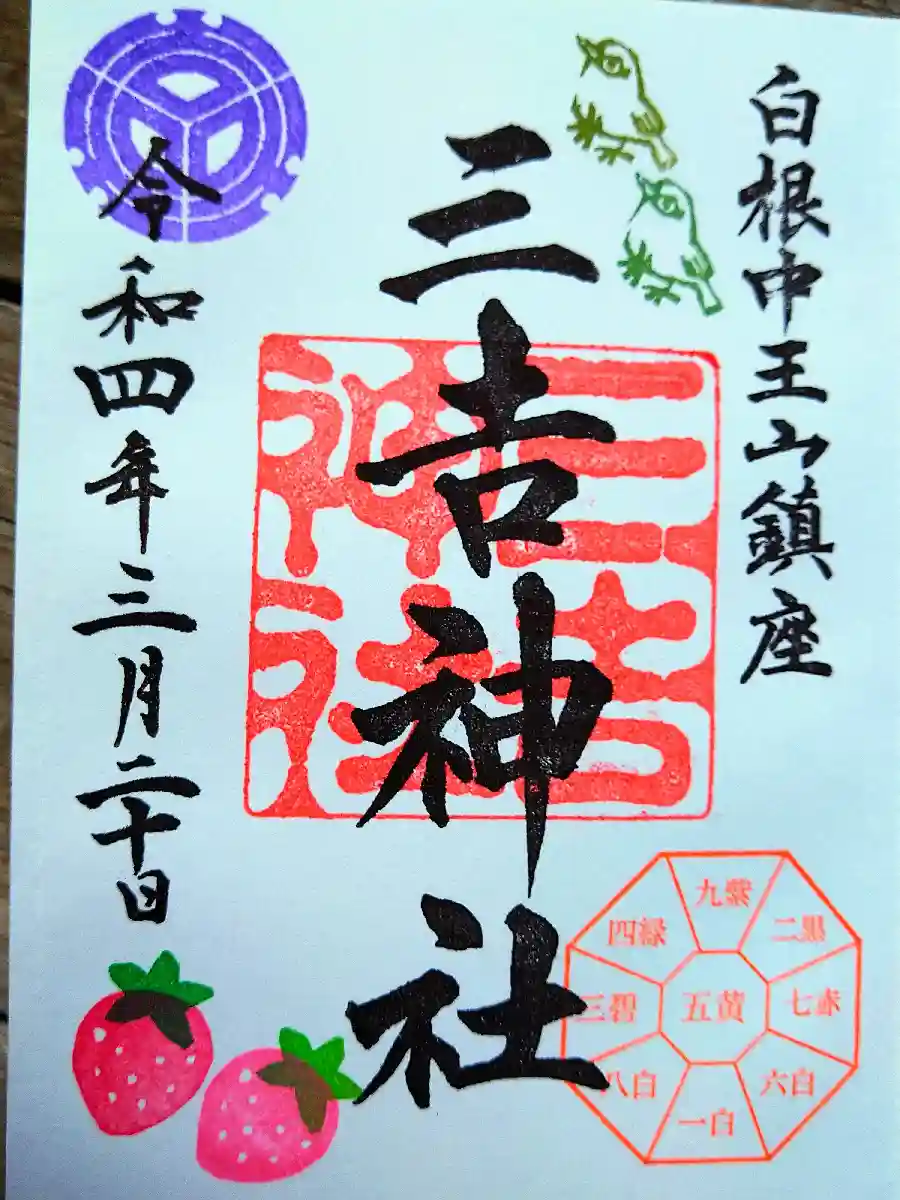 白根中王山鎮座
三吉神社
三吉神社
令和四年三月二十日
九紫
四緑
二黒
三碧
五黄
七赤
八白
六白
一白